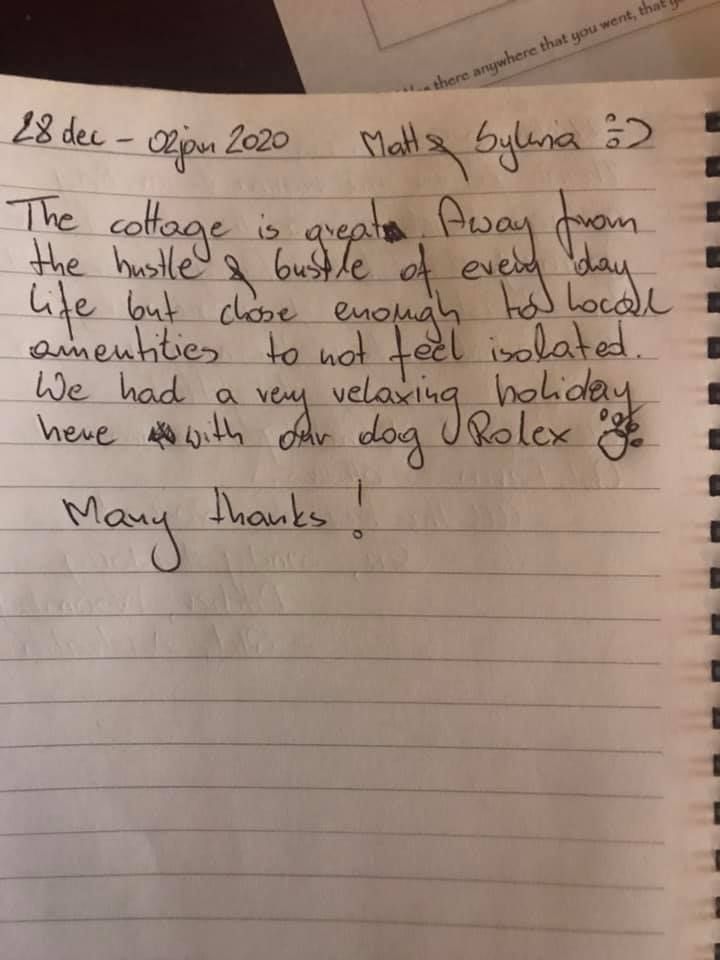 there anywhere that you went, that
28 dec - 02 jan 2020 Matt & Sylwia :)
The cottage is great. Away from
the hustle & bustle of every day
life but close enough to local
amentities to not feel isolated.
We had a very relaxing holiday
here with our dog Rolex
Many thanks!